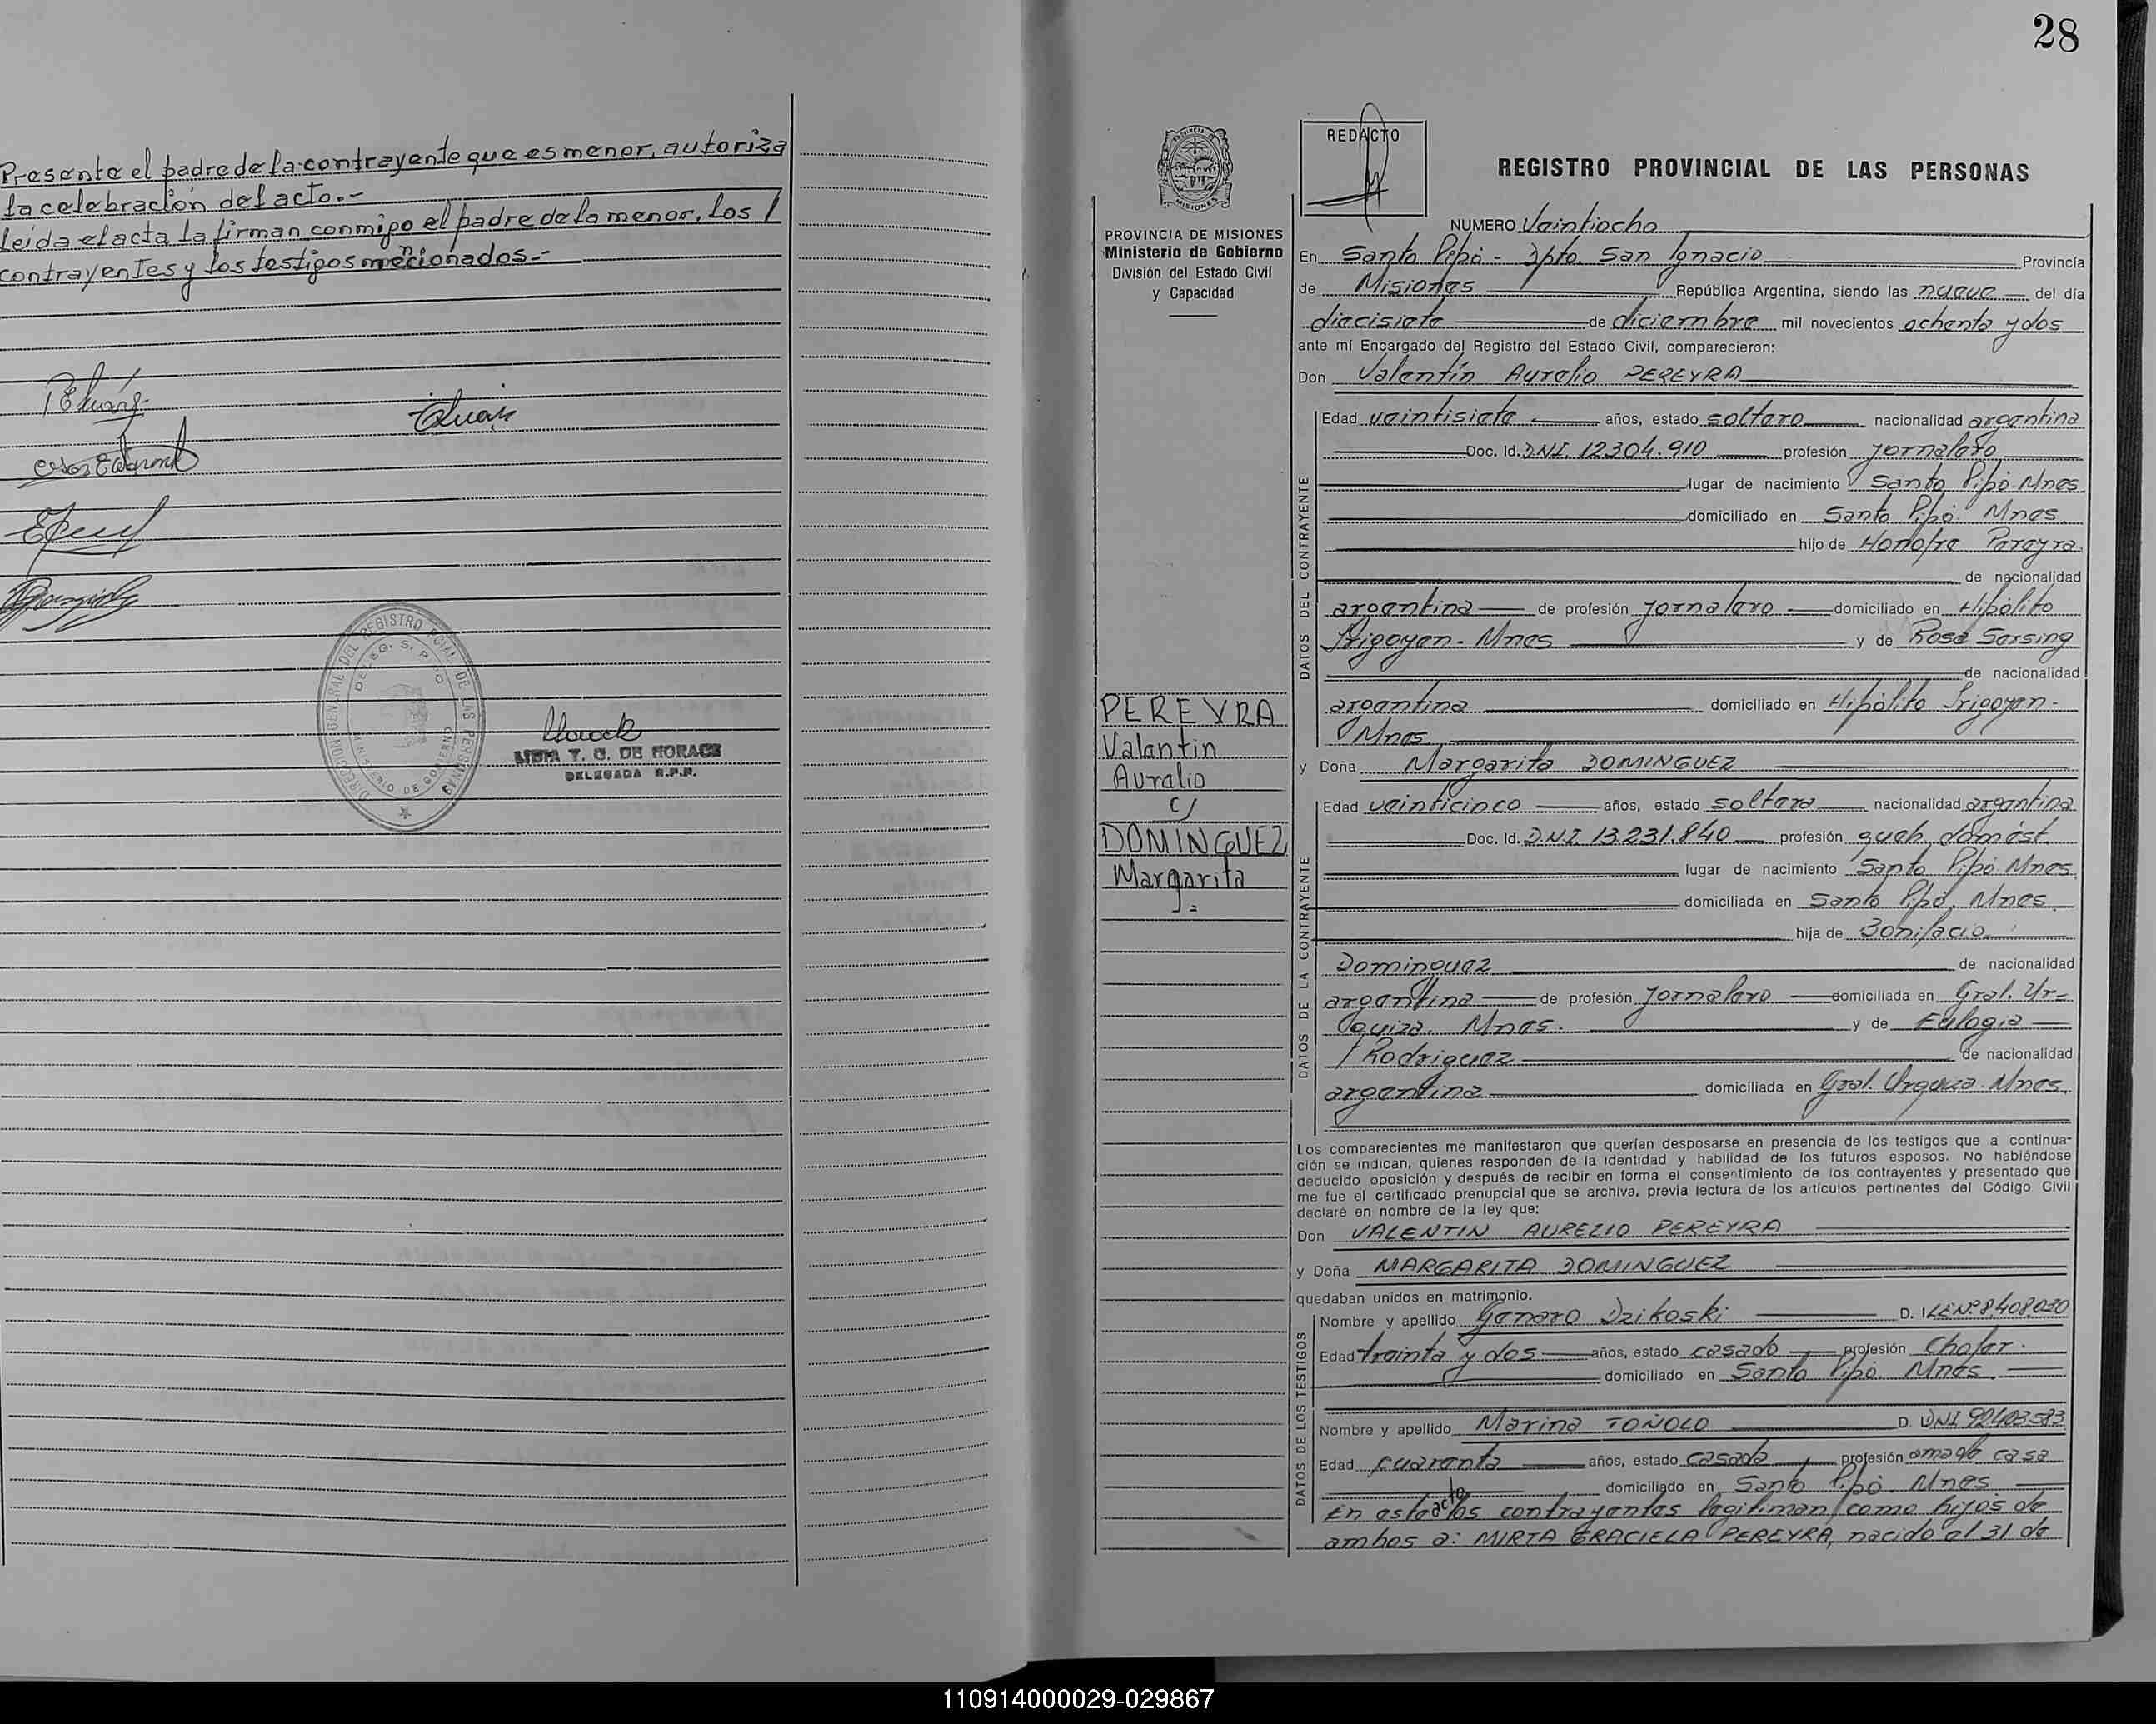 Presente el padre de la contrayente que es menor, autoriza
la celebración del acto.-
Leida el acta la firman conmigo el padre de la menor, los
contrayentes y los testigos mencionados.-
DIRECCION GENERAL DEL REGISTRO PCIAL. DE LAS PERSONAS
MINISTERIO DE GOBIERNO
LIDIA T. C. DE HORACE
DELEGADA R.P.P.
28
PROVINCIA DE MISIONES
Ministerio de Gobierno
División del Estado Civil
y Capacidad
PEREYRA
Valentin
Aurelio
c/
DOMINGUEZ
Margarita
REDACTO
REGISTRO PROVINCIAL DE LAS PERSONAS
NUMERO Veintiocho
En Santo Pipó - Dpto. San Ignacio Provincia
de Misiones República Argentina, siendo las nueve del día
diecisiete de diciembre mil novecientos ochenta y dos
ante mí Encargado del Registro del Estado Civil, comparecieron:
Don Valentín Aurelio PEREYRA
DATOS DEL CONTRAYENTE
Edad veintisiete años, estado soltero nacionalidad argentina
Doc. Id. DNI. 12.304.910 profesión jornalero
lugar de nacimiento Santo Pipó. Mnes.
domiciliado en Santo Pipó. Mnes.
hijo de Honofre Pereyra
de nacionalidad
argentina de profesión jornalero domiciliado en Hipólito
Irigoyen - Mnes y de Rosa Sersing
de nacionalidad
argentina domiciliado en Hipólito Irigoyen -
Mnes
y Doña Margarita DOMINGUEZ
DATOS DE LA CONTRAYENTE
Edad veinticinco años, estado soltera nacionalidad argentina
Doc. Id. D.N.I. 13.231.840 profesión queh. domést.
lugar de nacimiento Santo Pipó. Mnes.
domiciliada en Santo Pipó. Mnes.
hija de Bonifacio
Dominguez de nacionalidad
argentina de profesión jornalero domiciliada en Gral. Ur-
quiza. Mnes. y de Eulogia
Rodriguez de nacionalidad
argentina domiciliada en Gral. Urquiza. Mnes.
Los comparecientes me manifestaron que querían desposarse en presencia de los testigos que a continua-
ción se indican, quienes responden de la identidad y habilidad de los futuros esposos. No habiéndose
deducido oposición y después de recibir en forma el consentimiento de los contrayentes y presentado que
me fue el certificado prenupcial que se archiva, previa lectura de los artículos pertinentes del Código Civil
declaré en nombre de la ley que:
Don VALENTIN AURELIO PEREYRA
y Doña MARGARITA DOMINGUEZ
quedaban unidos en matrimonio.
DATOS DE LOS TESTIGOS
Nombre y apellido Genaro Dzikoski D. I. LE Nº 8,408,030
Edad treinta y dos años, estado casado profesión chofer.
domiciliado en Santo Pipó. Mnes.
Nombre y apellido Marina TOÑOLO D. DNI 92403583
Edad cuarenta años, estado casada profesión ama de casa
domiciliado en Santo Pipó. Mnes.
En este acto los contrayentes legitiman como hijos de
ambos a: MIRTA GRACIELA PEREYRA, nacida el 31 de
110914000029-029867